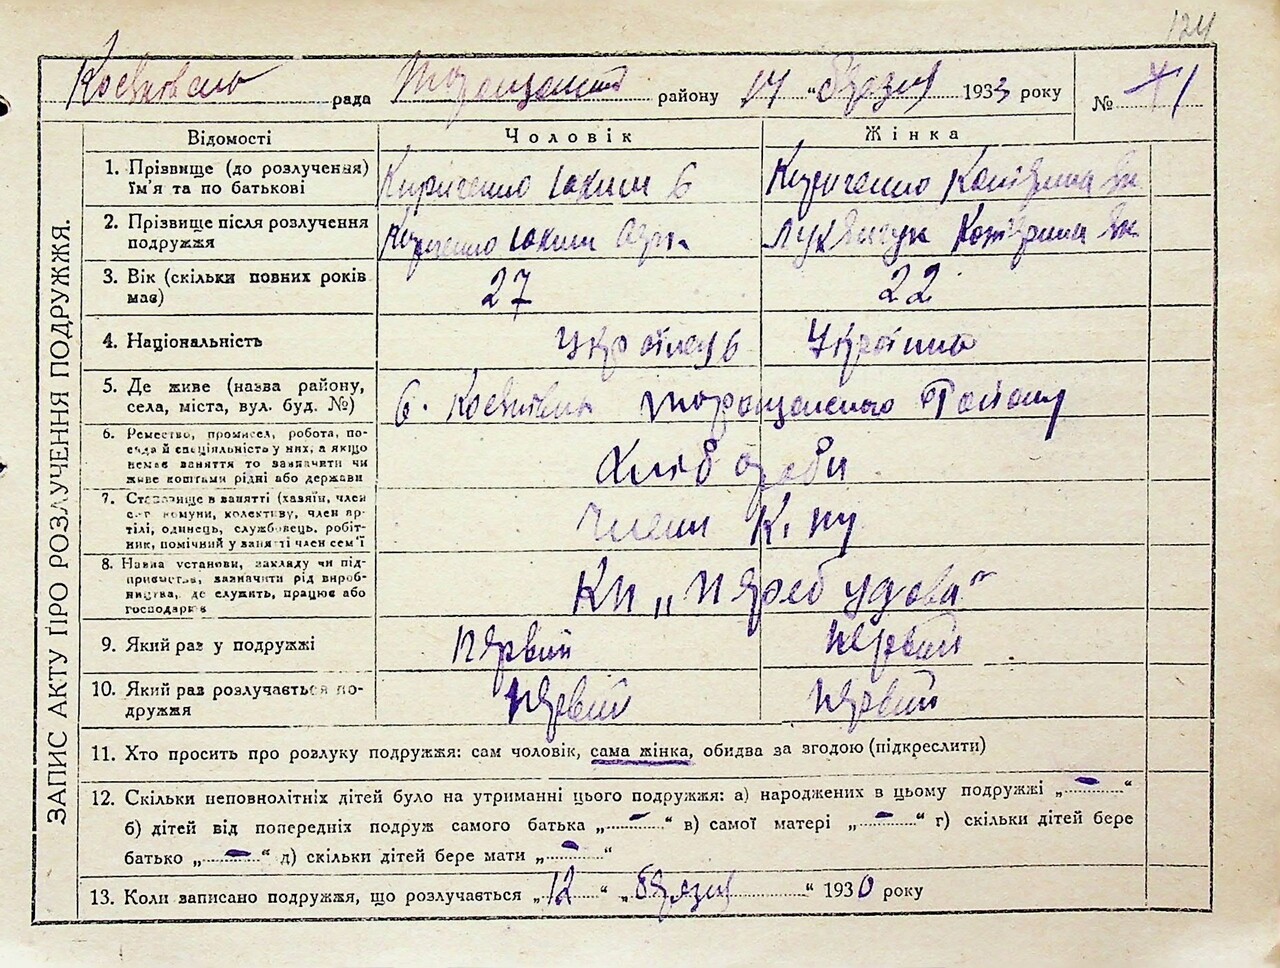 124
рада Таращанський району 14 "березня 1933 року
№
ЗАПИС АКТУ ПРО РОЗЛУЧЕННЯ ПОДРУЖЖЯ.
Відомості Чоловік Жінка
1. Прізвище (до розлучення) ім'я та по батькові
Кириченко Іаким Кириченко Катерина Як
2. Прізвище після розлучення подружжя
Кириченко Іаким Лук'янчук Катерина Як
3. Вік (скільки повних років має)
27 22
4. Національність
Українець Українка
5. Де живе (назва району, села, міста, вул. буд. №)
с. Таращанського Району
6. Ремество, промисел, робота, посада й спеціяльність у них, а якщо немає заняття то зазначити чи живе коштами рідні або держави
Хлібороби
7. Становище в занятті (хазяїн, член с.-г. комуни, колективу, член артілі, одинець, службовець, робітник, помічний у занятті член сем'ї
Члени
8. Назва установи, закладу чи підприємства, зазначити рід виробництва, де служить, працює або господарює
"Перебудова"
9. Який раз у подружжі
первий первий
10. Який раз розлучається подружжя
первий первий
11. Хто просить про розлуку подружжя: сам чоловік, сама жінка, обидва за згодою (підкреслити)
12. Скільки неповнолітніх дітей було на утриманні цього подружжя: а) народжених в цьому подружжі „ — “
б) дітей від попередніх подруж самого батька „ — “ в) самої матері „ — “ г) скільки дітей бере
батько „ — “ д) скільки дітей бере мати „ — “
13. Коли записано подружжя, що розлучається „ 12 “ „ березня “ 1930 року